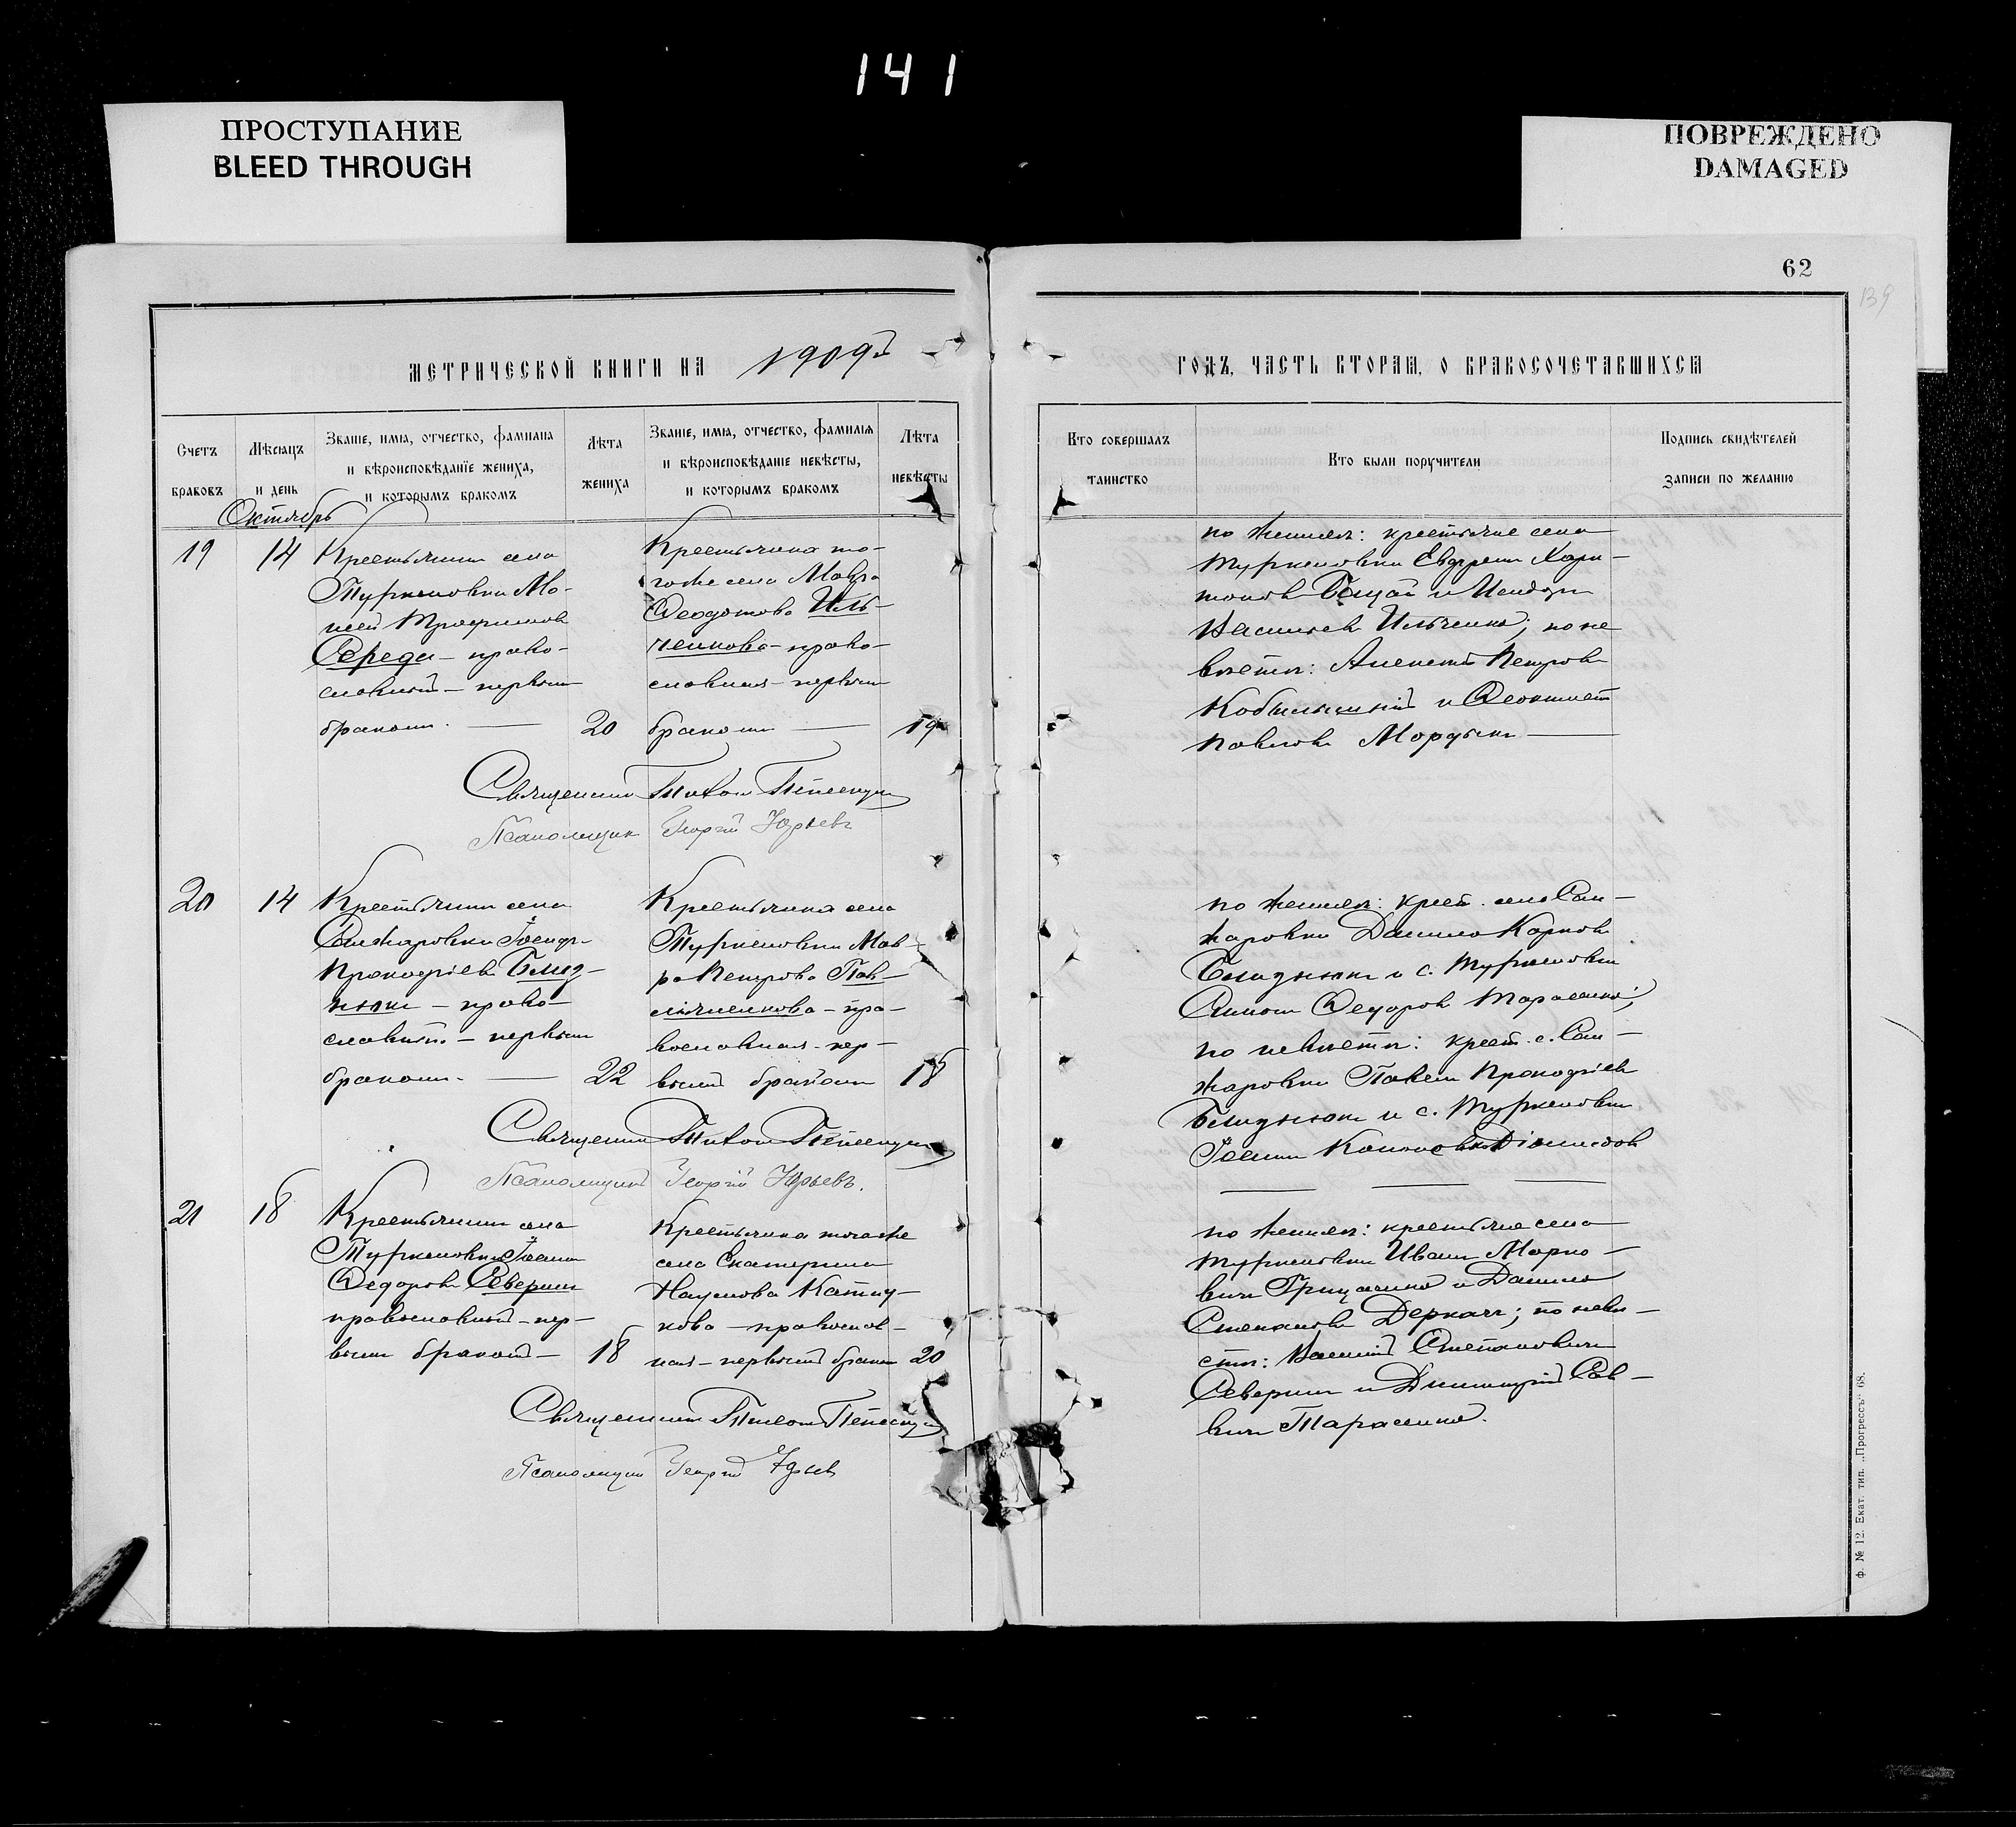 141
ПРОСТУПАНИЕ
BLEED THROUGH
ПОВРЕЖДЕНО
DAMAGED
62
139
МЕТРИЧЕСКОЙ КНИГИ НА 1909й
ГОДЪ, ЧАСТЬ ВТОРАЯ, О БРАКОСОЧЕТАВШИХСЯ
Счетъ браковъ
Мѣсяцъ и день
Званіе, имя, отчество, фамилія и вѣроисповѣданіе жениха, и которымъ бракомъ
Лѣта жениха
Званіе, имя, отчество, фамилія и вѣроисповѣданіе невѣсты, и которымъ бракомъ
Лѣта невѣсты
Кто совершалъ таинство
Кто были поручители
Подпись свидѣтелей записи по желанію
Октябрь
19
14
Крестьянин села
Туркеновки Мо-
исей Трофимов
Середа – право-
славный – первым
браком.
20
Крестьянка то-
гоже села Мавра
Феодотова Иль-
ченкова – право-
славная – первым
браком
19
по жениху: крестьяне села
Туркеновки Евдоким Хари-
тонов и
Васильев Ильченко; по не
весте: Алексей Петров
Кобыльский и Феоктист
Павлов
Священник Тихон
Псаломщик Георгий Юрьев
20
14
Крестьянин села
Санжаровки
Прокофіев Близ-
нюк – право-
славный – первым
браком.
22
Крестьянка села
Туркеновки Мав-
ра Петрова Пав-
– пра-
вославная – пер-
вым браком
18
по жениху: крест. села Сан-
жаровки Данило Карпов
Близнюк и с. Туркеновки
Федоров Тарасенко;
по невесте: крест. с. Сан-
жаровки Павел Прокофіев
Близнюк и с. Туркеновки
Священник Тихон
Псаломщик Георгій Юрьевъ.
21
18
Крестьянин села
Туркеновки
Федоров Северин
православный – пер-
вым браком –
18
Крестьянка тогоже
села Екатерина
Наумова
кова – православ-
ная – первым браком
20
по жениху: крестьяне села
Туркеновки Иван Марко-
вич Грицаенко и Данило
Степанов Деркач; по неве-
сте: Василий Степанович
Северин и Димитрий Сав-
вич Тарасенко.
Священник Тихон
Псаломщик Георгий Юрьев
Ф. № 12. Екат. тип. „Прогрессъ“ 68.